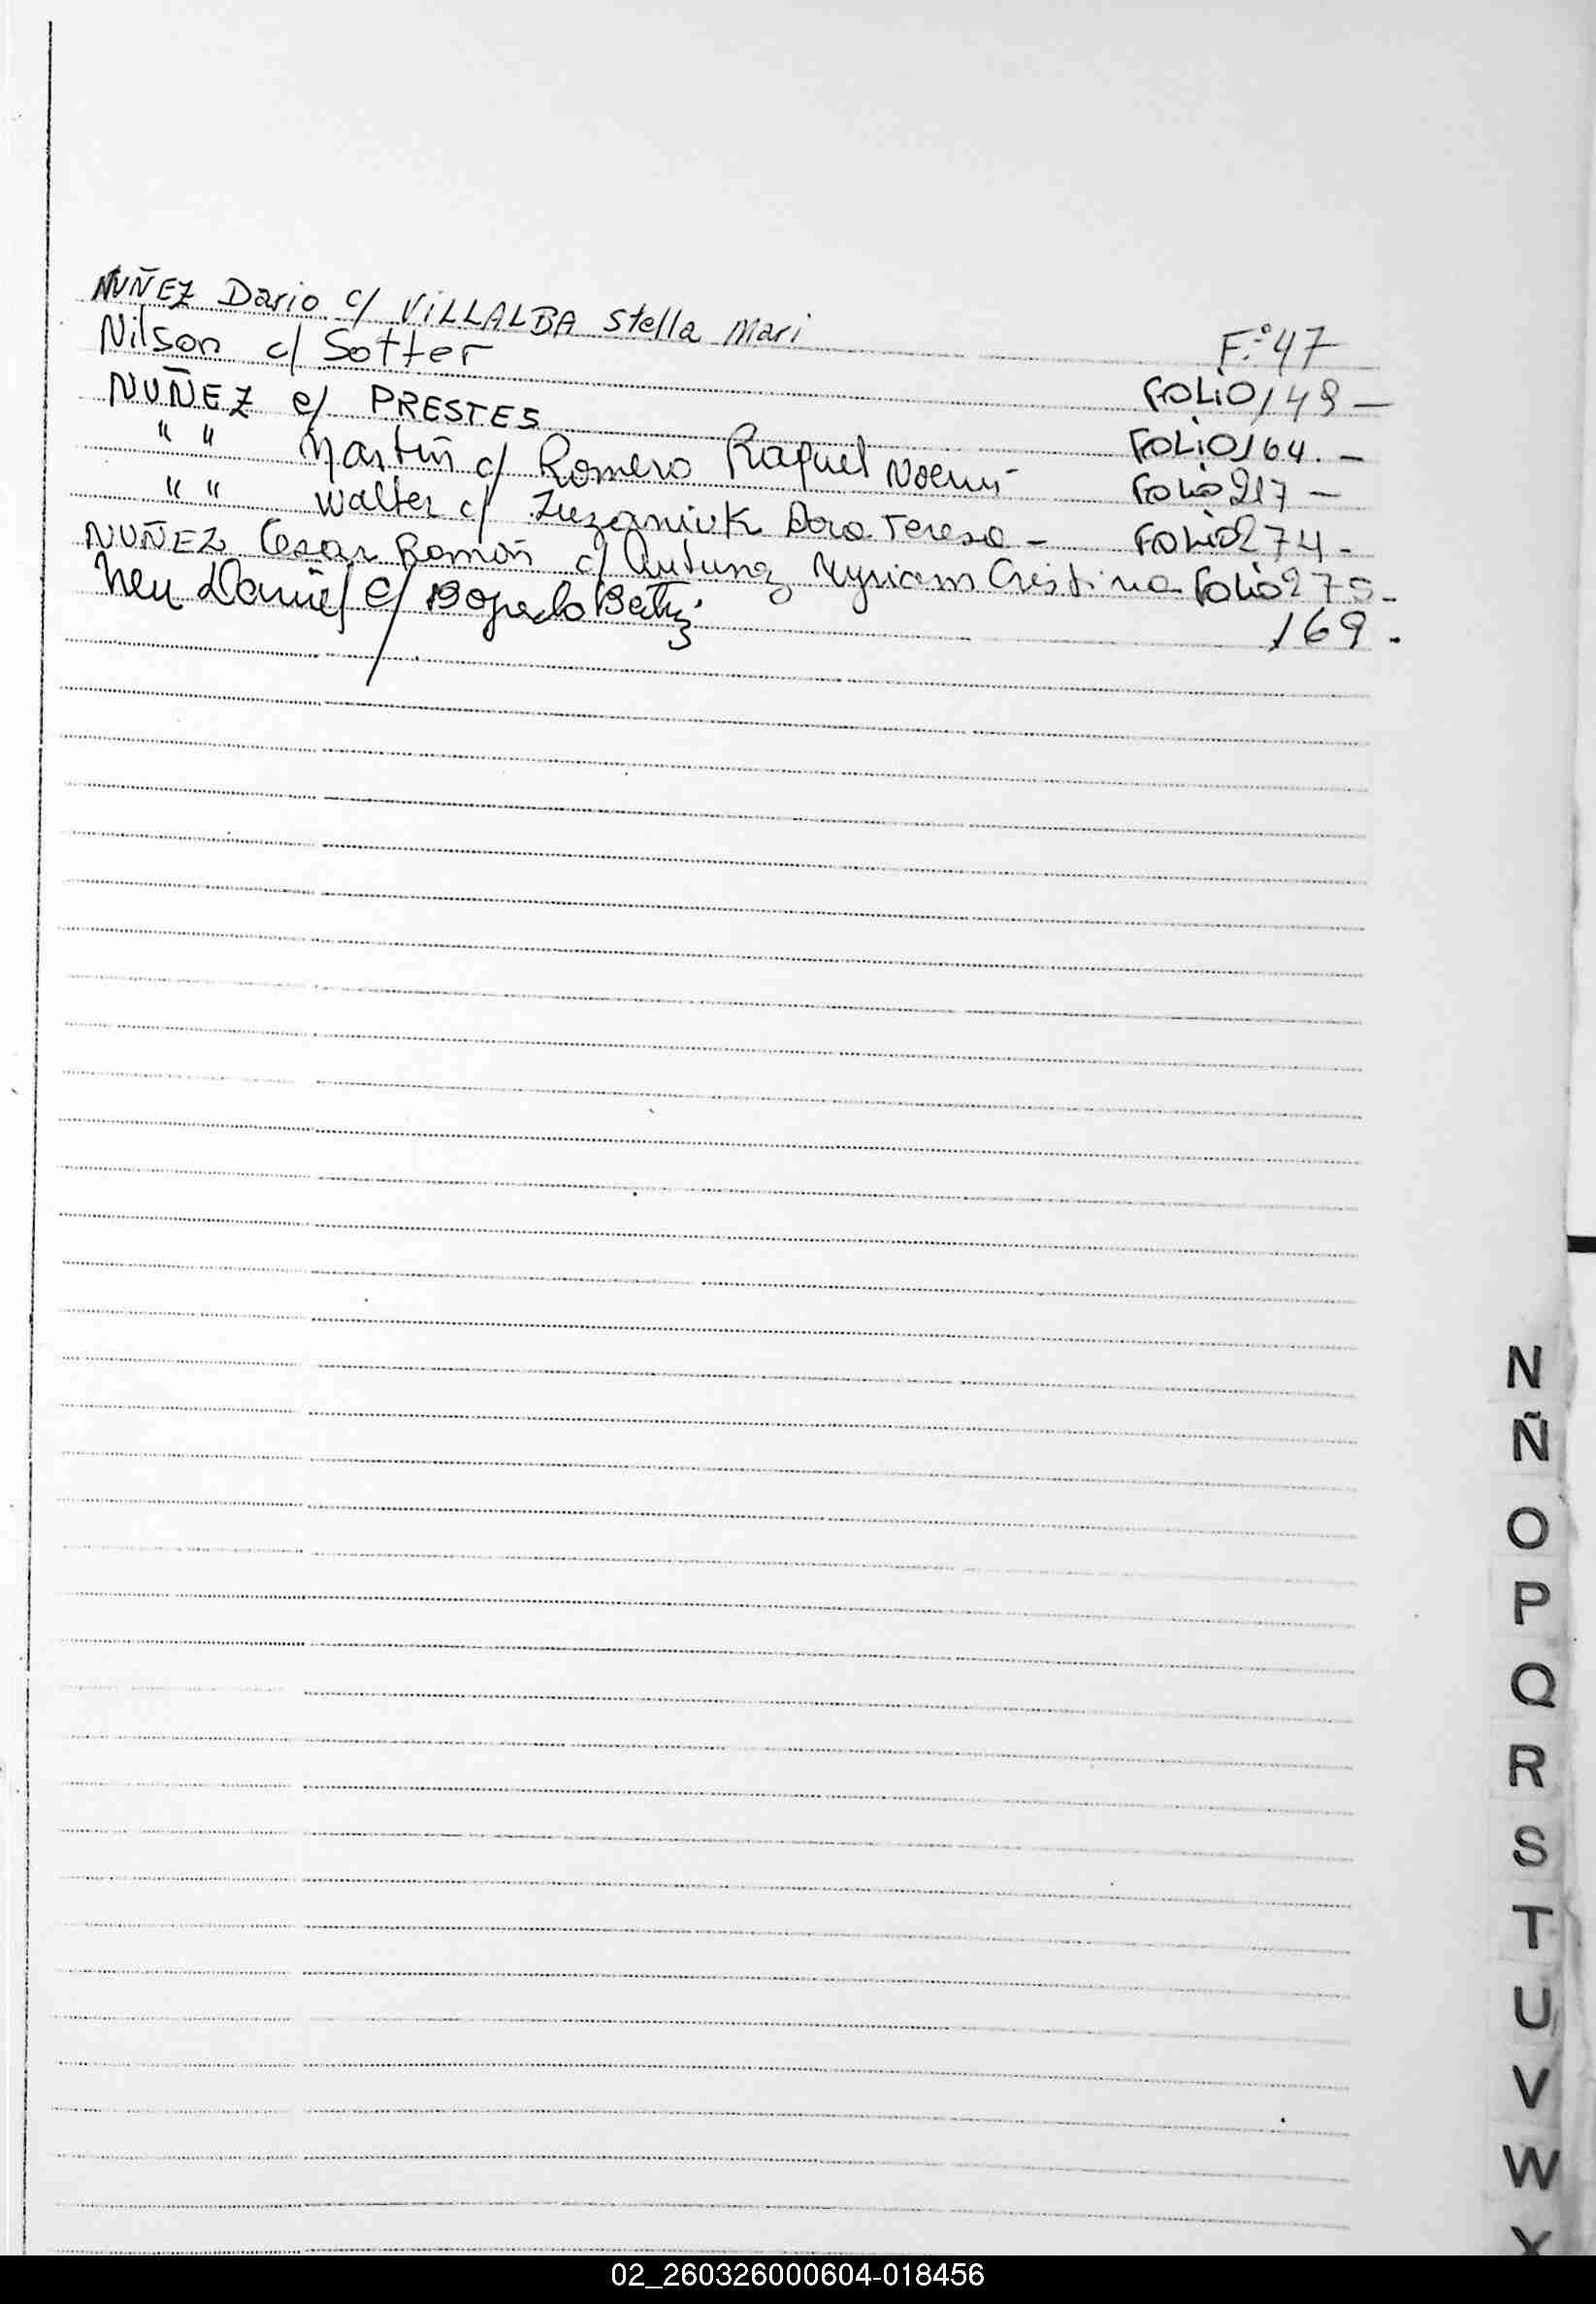 NUÑEZ Dario c/ VILLALBA Stella Mari F.º 47
Nilson c/ Sotter FOLIO 149 —
NUÑEZ c/ PRESTES FOLIO 164. —
" " Martin c/ Romero Raquel Noemi - FOLIO 217 —
" " Walter c/ Dora Teresa - FOLIO 274 -
NUÑEZ Cesar Ramón c/ Antunez Myriam Cristina FOLIO 275 -
Neu Daniel c/ Betty. 169.
N
Ñ
O
P
Q
R
S
T
U
V
W
X
02_260326000604-018456